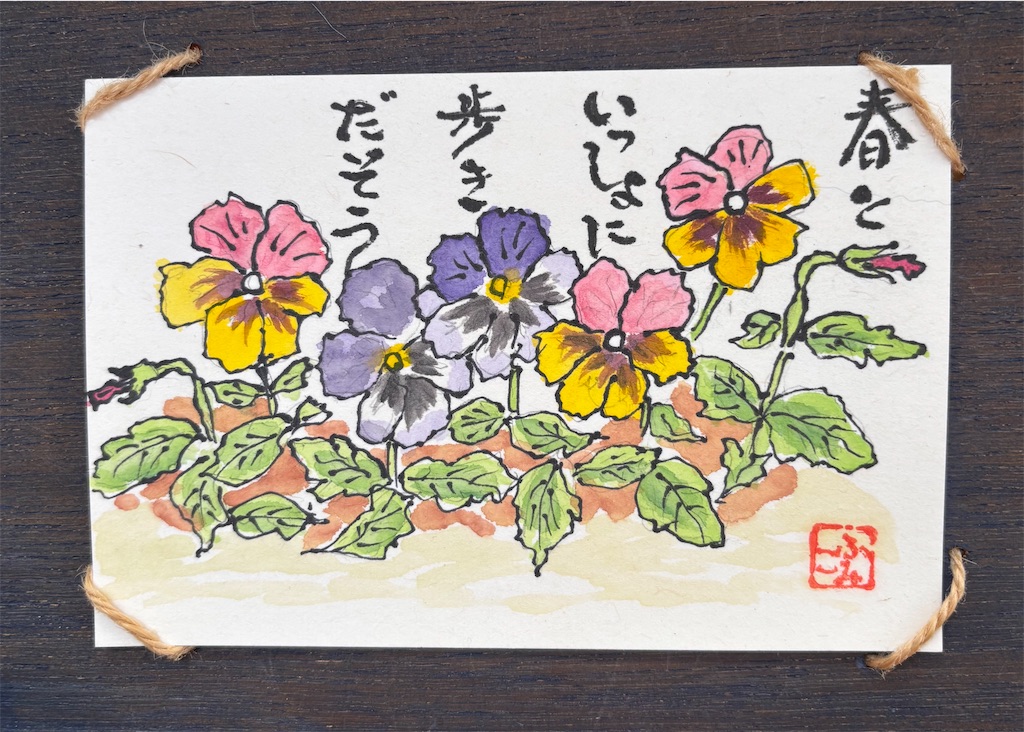 春と
いっしょに
歩き
だそう